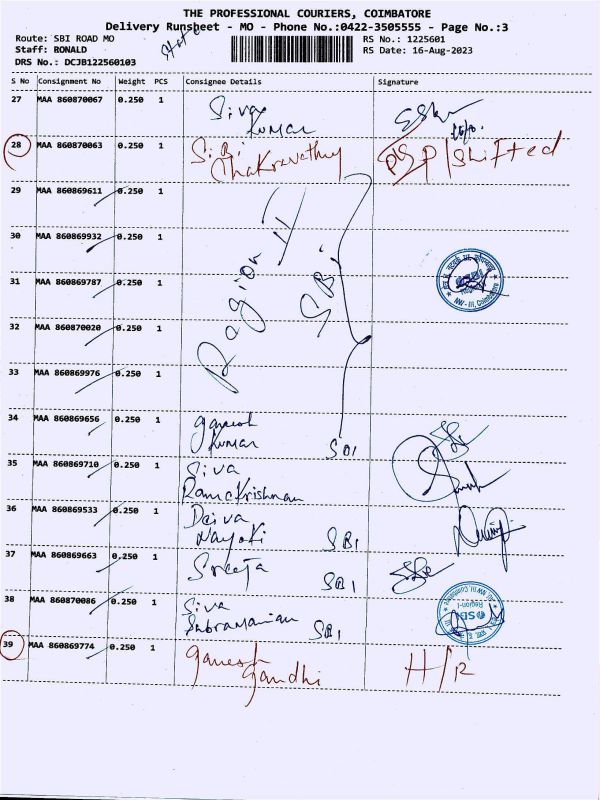 THE PROFESSIONAL COURIERS, COIMBATORE
Delivery Runsheet - MO - Phone No.:0422-3505555 - Page No.:3
Route: SBI ROAD MO
RS No.: 1225601
Staff: RONALD
RS Date: 16-Aug-2023
DRS No.: DCJB122560103
S No Consignment No Weight PCS Consignee Details Signature
27 MAA 860870067 0.250 1 Siva
Kumar
28 MAA 860870063 0.250 1 Sibi
Thakravathy P/Shifted
29 MAA 860869611 0.250 1
30 MAA 860869932 0.250 1
Region II
SBI
31 MAA 860869787 0.250 1
NW-III, Coimbatore
32 MAA 860870020 0.250 1
33 MAA 860869976 0.250 1
34 MAA 860869656 0.250 1 Ganesh
Kumar SBI
35 MAA 860869710 0.250 1 Siva
Ramakrishnan
36 MAA 860869533 0.250 1 Deiva
Nayaki SBI
37 MAA 860869663 0.250 1 Sreeja SBI
38 MAA 860870086 0.250 1 Siva
Subramanian SBI
SBI
Region-I
39 MAA 860869774 0.250 1 Ganesh
Gandhi H/R